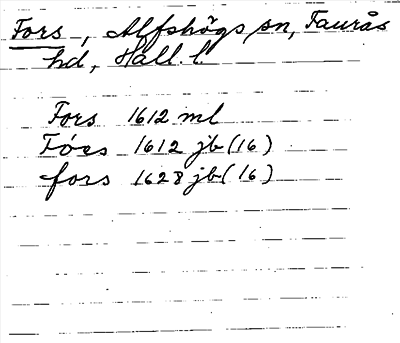 Fors, Alfshögs sn, Faurås
hd, Hall. l.
Fors 1612 ml
Fórs 1612 jb (16)
fors 1628 jb (16)